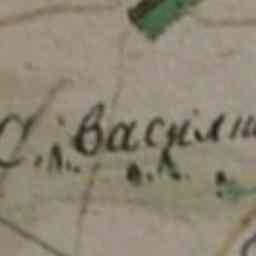 С. васили